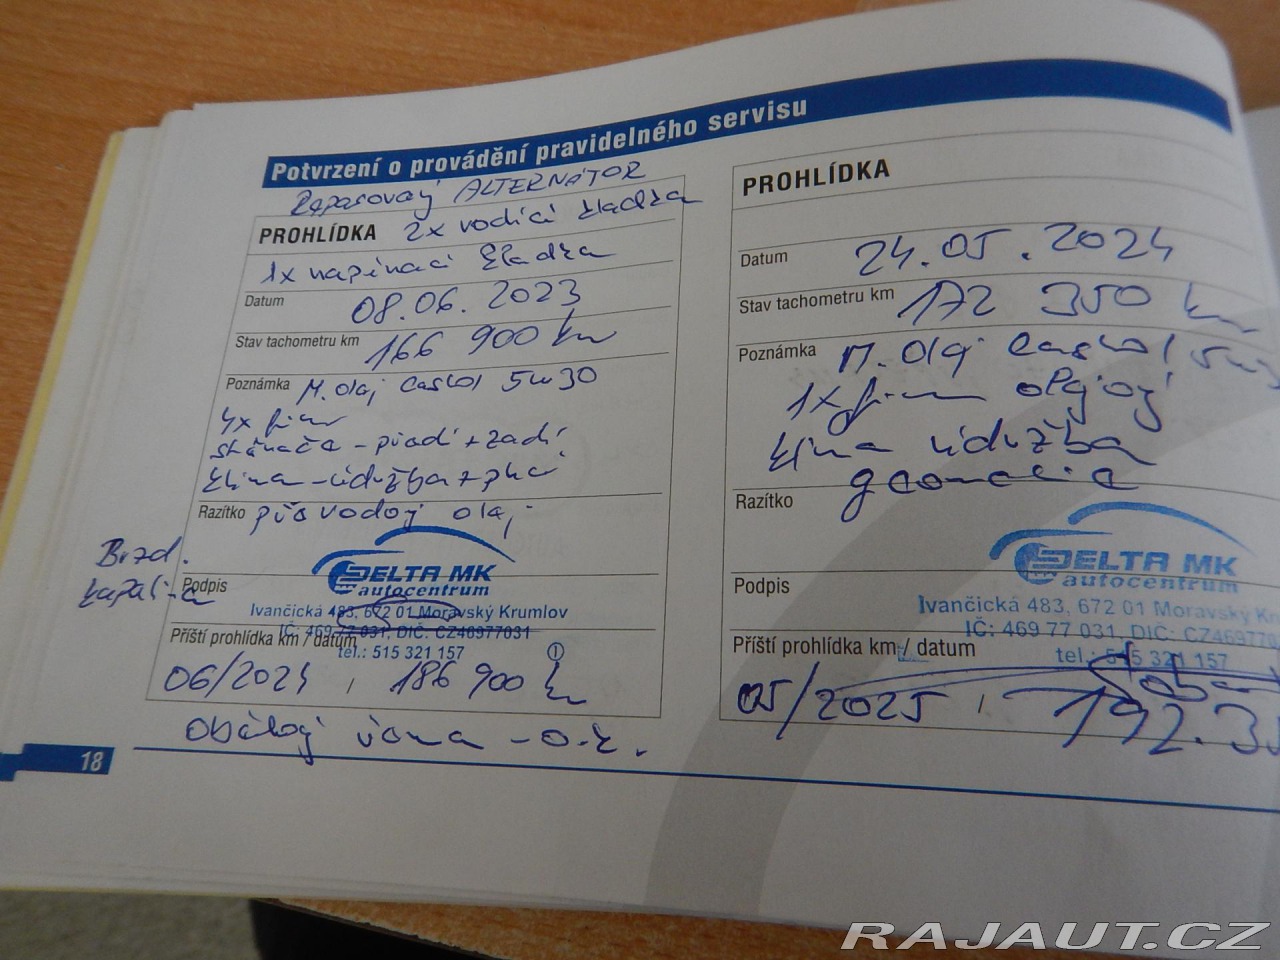 Potvrzení o provádění pravidelného servisu
Repasovaný ALTERNÁTOR
PROHLÍDKA 2x vodící kladka
1x napínací kladka
Datum 08.06.2023
Stav tachometru km 166 900 km
Poznámka M. olej Castrol 5w30
4x filtr
stěrače - přední + zadní
klima - údržba + plnění
Razítko převodový olej
Brzd.
kapalina
DELTA MK
autocentrum
Podpis
Ivančická 483, 672 01 Moravský Krumlov
IČ: 469 77 031, DIČ: CZ46977031
Příští prohlídka km / datum
tel.: 515 321 157
06/2024, 186 900 km
- o.k.
18
PROHLÍDKA
Datum 24.05.2024
Stav tachometru km 172 350 km
Poznámka M. Olej Castrol 5w3
1x filtr olejový
klima údržba
geometrie
Razítko
DELTA MK
autocentrum
Podpis
Ivančická 483, 672 01 Moravský Kr
IČ: 469 77 031, DIČ: CZ469770
Příští prohlídka km / datum
tel.: 515 321 157
05/2025, 192.35
RAJAUT.CZ